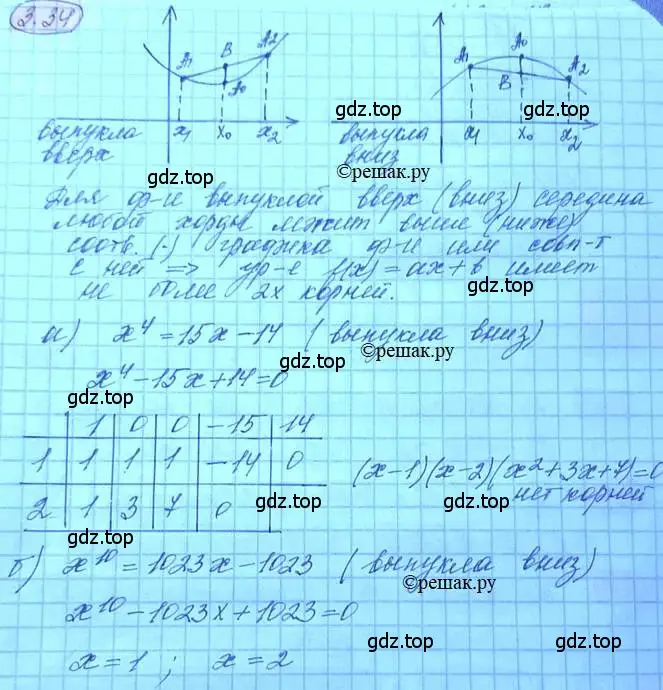 3.34
A₁ B A₂
A₀
x₁ x₀ x₂
выпукла
вверх
A₁ A₀
B A₂
x₁ x₀ x₂
выпукла
вниз
gdz.top
gdz.top
©решак.ру
Для ф-и выпуклой вверх (вниз) середина
любой хорды лежит выше (ниже)
соотв. (·) графика ф-и или совп-т
с ней ⇒ ур-е f(x) = ax + b имеет
не более 2х корней.
gdz.top
gdz.top
gdz.top
а) x⁴ = 15x - 14 (выпукла вниз)
©решак.ру
gdz.top
x⁴ - 15x + 14 = 0
gdz.top
1 0 0 -15 14
1 1 1 1 -14 0
2 1 3 7 0
(x-1)(x-2)(x²+3x+7)=0
нет корней
gdz.top
gdz.top
б) x¹⁰ = 1023x - 1023 (выпукла вниз)
©решак.ру
x¹⁰ - 1023x + 1023 = 0
x = 1 ; x = 2
gdz.top
gdz.top